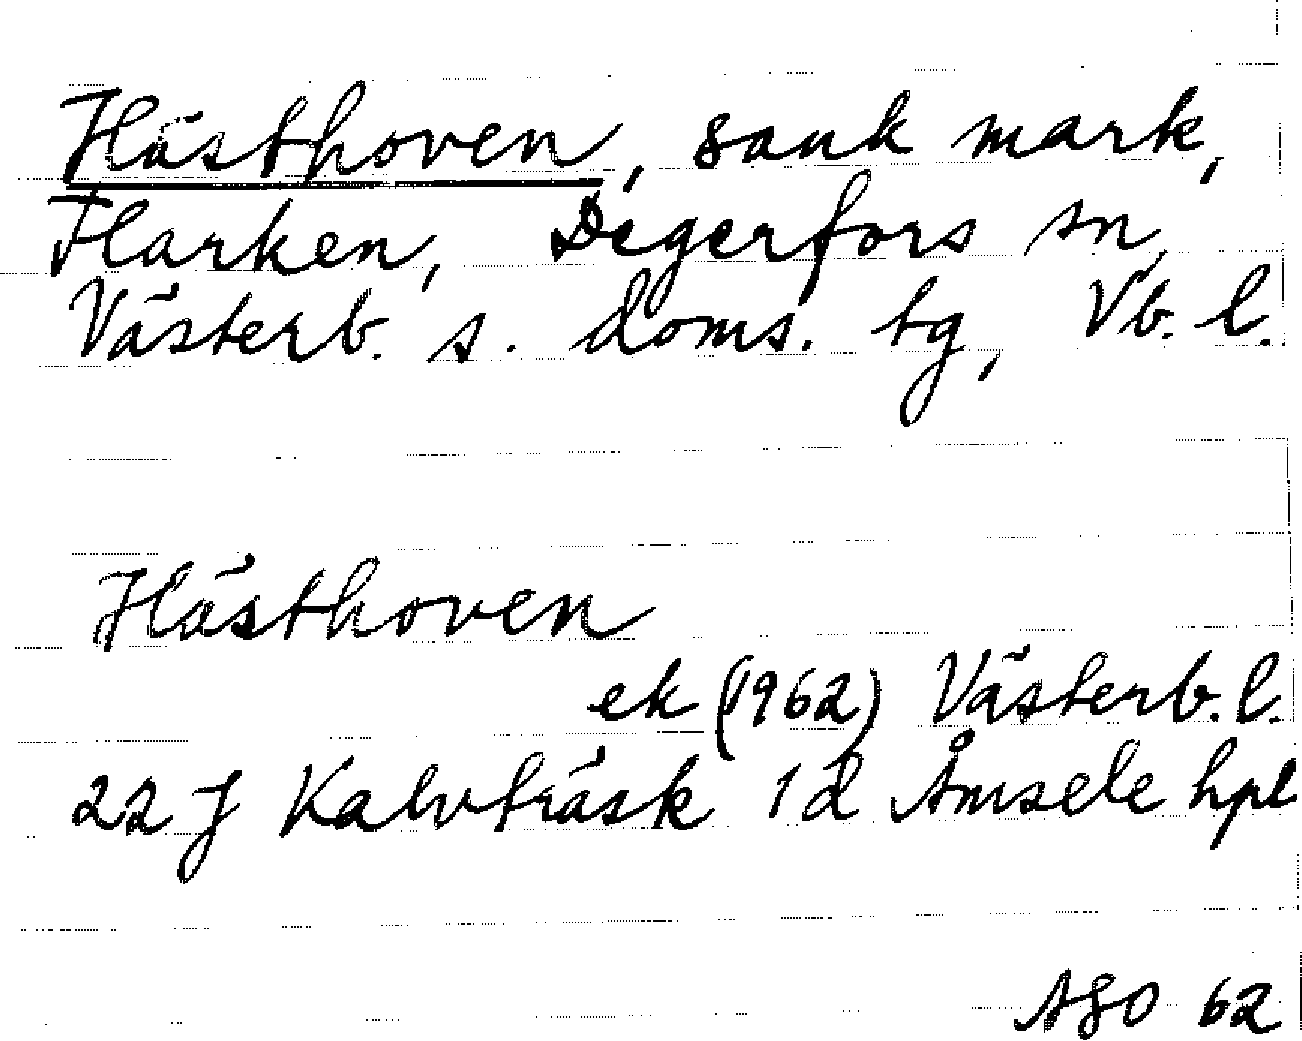 Hästhoven, sank mark,
Flarken, Degerfors sn,
Västerb. s. doms. tg, Vb. l.
Hästhoven
ek (1962) Västerb. l.
22 J Kalvträsk 1 d Åmsele hpl
ASO 62